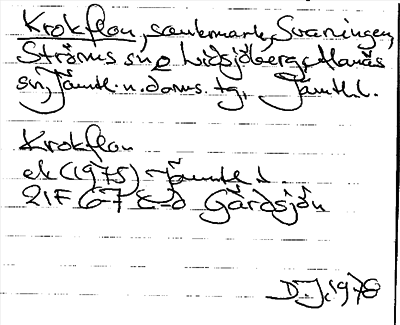 Krokflon, sankmark, Svaningen,
Ströms sn o Lidsjöberg, Alanäs
sn, Jämtl. n. doms. tg, Jämtl. l.
Krokflon
ek (1975) Jämtl l
21F 6-7 c-d Gärdsjön
D.J. 1978